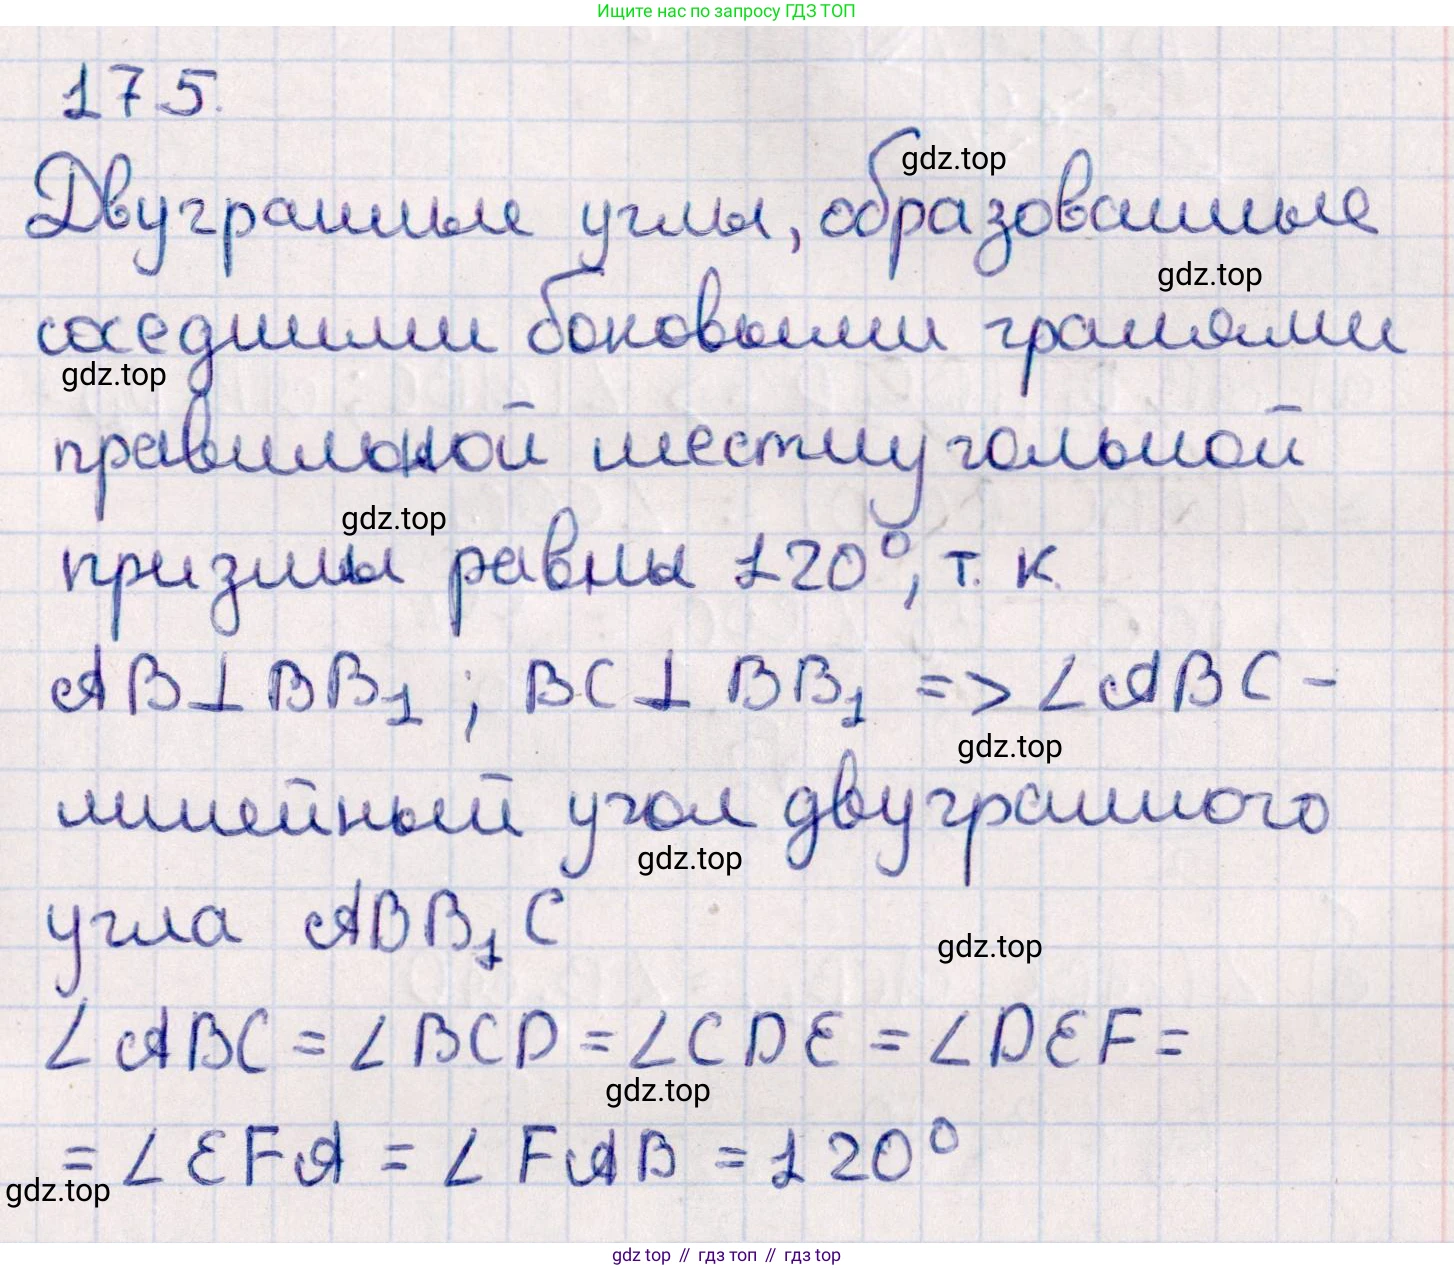 Ищите нас по запросу ГДЗ ТОП
17.5.
Двугранные углы, образованные
gdz.top
gdz.top
соседними боковыми гранями
gdz.top
правильной шестиугольной
gdz.top
призмы равны 120°, т. к.
AB⊥BB₁ ; BC⊥BB₁ => ∠ABC –
gdz.top
линейный угол двугранного
gdz.top
угла ABB₁C
gdz.top
∠ABC = ∠BCD = ∠CDE = ∠DEF =
gdz.top
= ∠EFA = ∠FAB = 120°
gdz.top
gdz top // гдз топ // гдз top